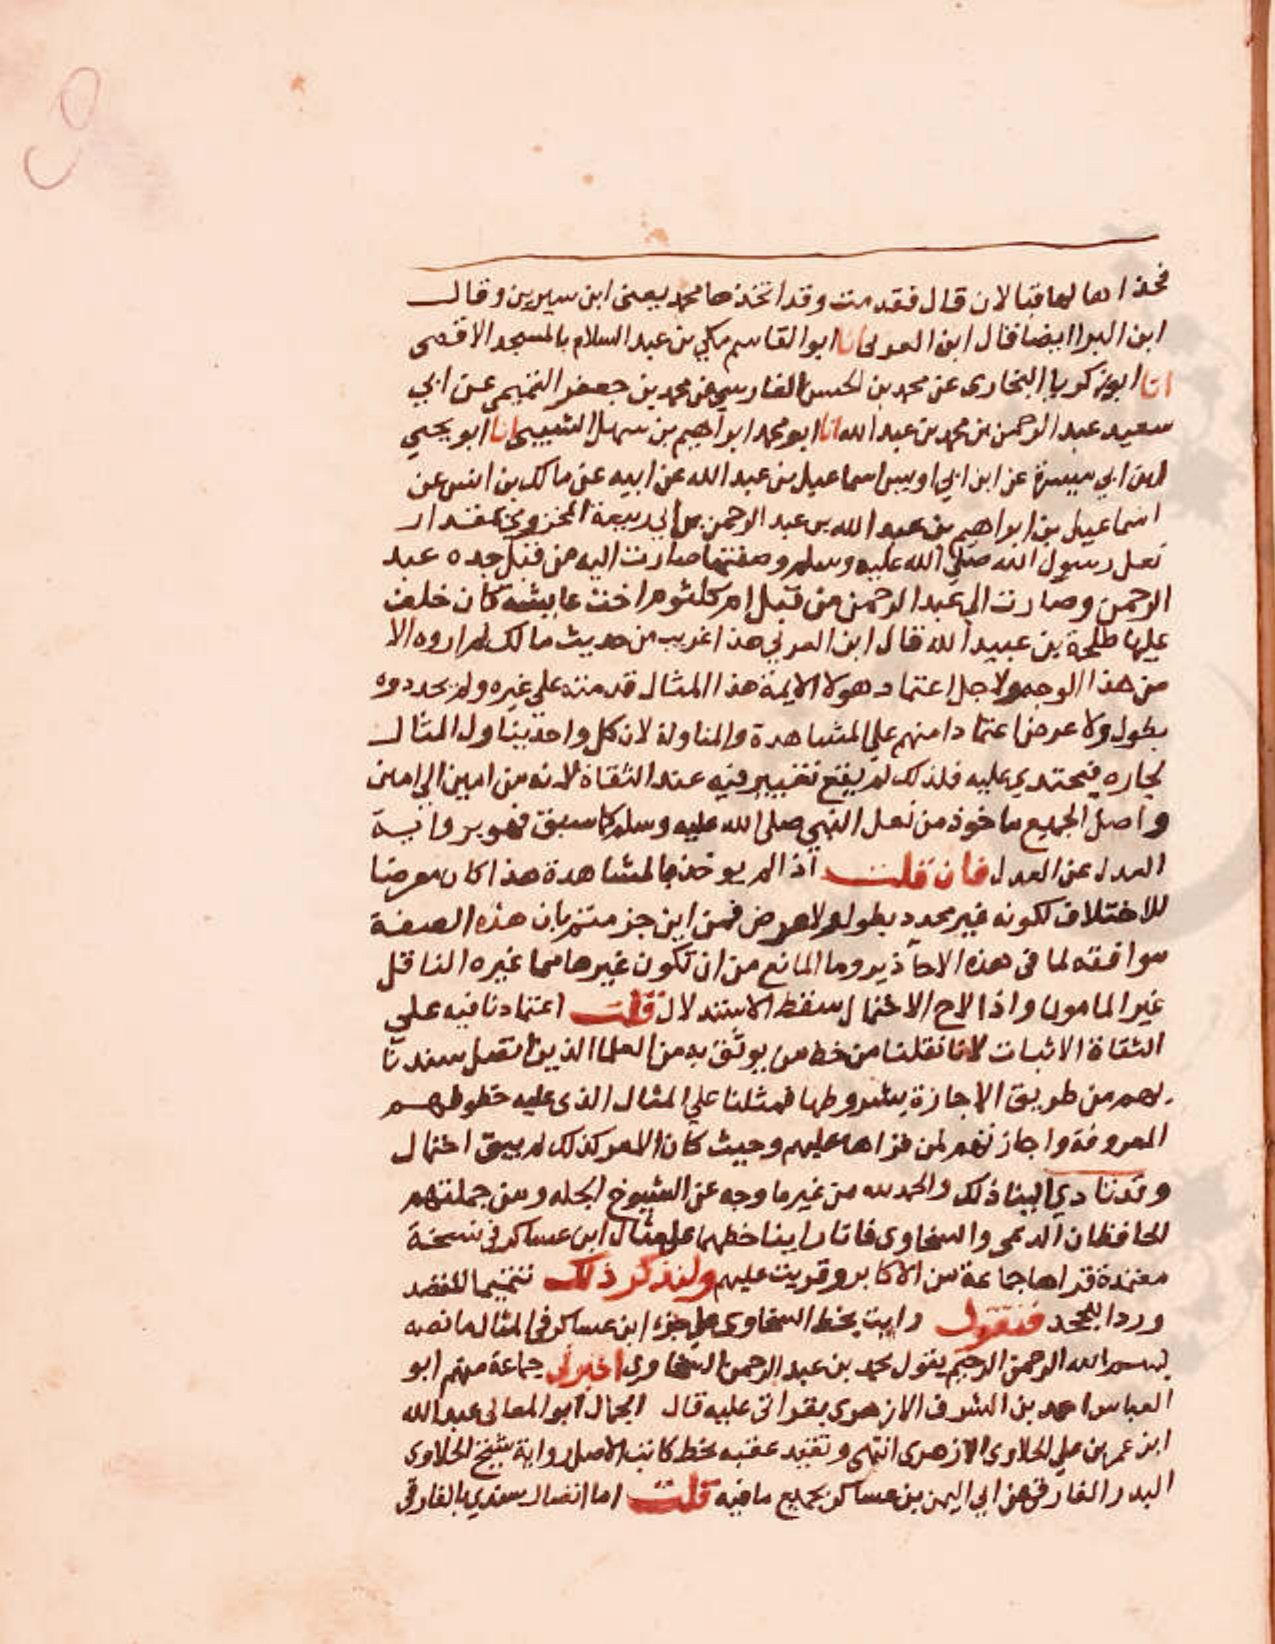 فخذاها لها قبالان قال فقدمت وقد اتخذها محمد يعني ابن سيرين وقال
ابن البرا ايضا قال ابن العربي انا ابو القاسم مكي بن عبد السلام بالمسجد الاقصى
انا ابو زكريا البخارى عن محمد بن الحسن الفارسي عن محمد بن جعفر التميمي عن ابي
سعيد عبد الرحمن بن محمد بن عبد الله انا ابو محمد ابراهيم بن سهل الشيبي انا ابو يحيي
ابن ابي ميسرة عن ابن ابي اويس اسماعيل بن عبد الله عن ابيه عن مالك بن انس عن
اسماعيل بن ابراهيم بن عبد الله بن عبد الرحمن بن ابي ربيعة المخزومي بمقدار
نعل رسول الله صلي الله عليه وسلم وصفتها صارت اليه من قبل جده عبد
الرحمن وصارت الى عبد الرحمن من قبل ام كلثوم اخت عايشة كان خلف
عليها طلحة بن عبيد الله قال ابن العربي هذا غريب من حديث مالك لم اروه الا
من هذا الوجه ولاجل اعتماد هولا الايمة هذا المثال قدمته علي غيره ولم يحددوه
بطول ولا عرض اعتمادا منهم علي المشاهدة والمناولة لان كل واحد يناوله المثال
لجاره فيحتدي عليه فلذلك لم يقع تغيير فيه عند الثقاة لانه من امين الي امين
واصل الجميع ماخوذ من نعل النبي صلى الله عليه وسلم كما سبق فهو برواية
العدل عن العدل فان قلت اذا لم يوخذ بالمشاهدة هذا كان معرضا
للاختلاف لكونه غير محدد بطول ولا عرض فمن اين جزمتم بان هذه الصفة
موافقة لما في هذه الاحاذير وما المانع من ان تكون غيرها مما غيره الناقل
غير المامون واذا لاح الاحتمال سقط الاستدلال قلت اعتمادنا فيه علي
الثقاة الاثبات لانا نقلنا من خط من يوثق به من العلما الذين اتصل سندنا
بهم من طريق الاجازة بشروطها فمثلنا علي المثال الذى عليه خطوطهم
المعروفة واجازتهم لمن قراها عليهم وحيث كان الامر كذلك لم يبق احتمال
وقد تادي الينا ذلك والحمد لله من غير ما وجه عن الشيوخ الجله ومن جملتهم
الحافظان الديمى والسخاوى فانا راينا خطهما علي مثال ابن عساكر في نسخة
معتمدة قراها جماعة من الاكابر وقريت عليهم ولنذكر ذلك تتميما للقصد
وردا للجحد فنقول رايت بخط السخاوى علي جزء ابن عساكر في المثال ما نصه
بسم الله الرحمن الرحيم يقول محمد بن عبد الرحمن السخاوي اخبرني جماعة منهم ابو
العباس احمد بن الشرف الازهرى بقراتى عليه قال الجمال ابو المعالى عبد الله
ابن عمر بن علي الحلاوى الازهرى انتهى وتقيد عقبه بخط كاتب الاصل رواية شيخ الحلاوى
البدر الفارقى عن ابي اليمن بن عساكر بجميع ما فيه قلت اما اتصال سندي بالفارقى